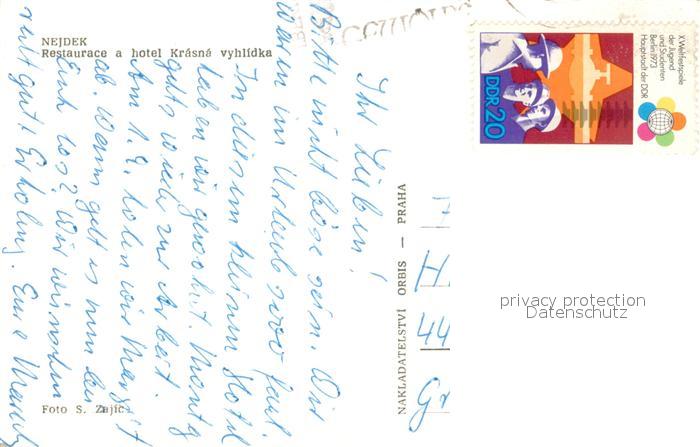 NEJDEK
Restaurace a hotel Krásná vyhlídka
Ihr Lieben!
Bitte nicht böse sein. Wir
waren im Urlaub sehr faul.
In diesem kleinen Hotel
haben wir gewohnt. Montag
geht's wieder zur Arbeit.
Am 1.9. holen wir Margit
ab. Wann geht es nun bei
Euch los? Wir wünschen
recht gute Erholung. Eure
Foto S. Zajíc
NAKLADATELSTVÍ ORBIS — PRAHA
H
44
Gr
X. Weltfestspiele
der Jugend
und Studenten
Berlin 1973
Hauptstadt der DDR
DDR 20
privacy protection
Datenschutz